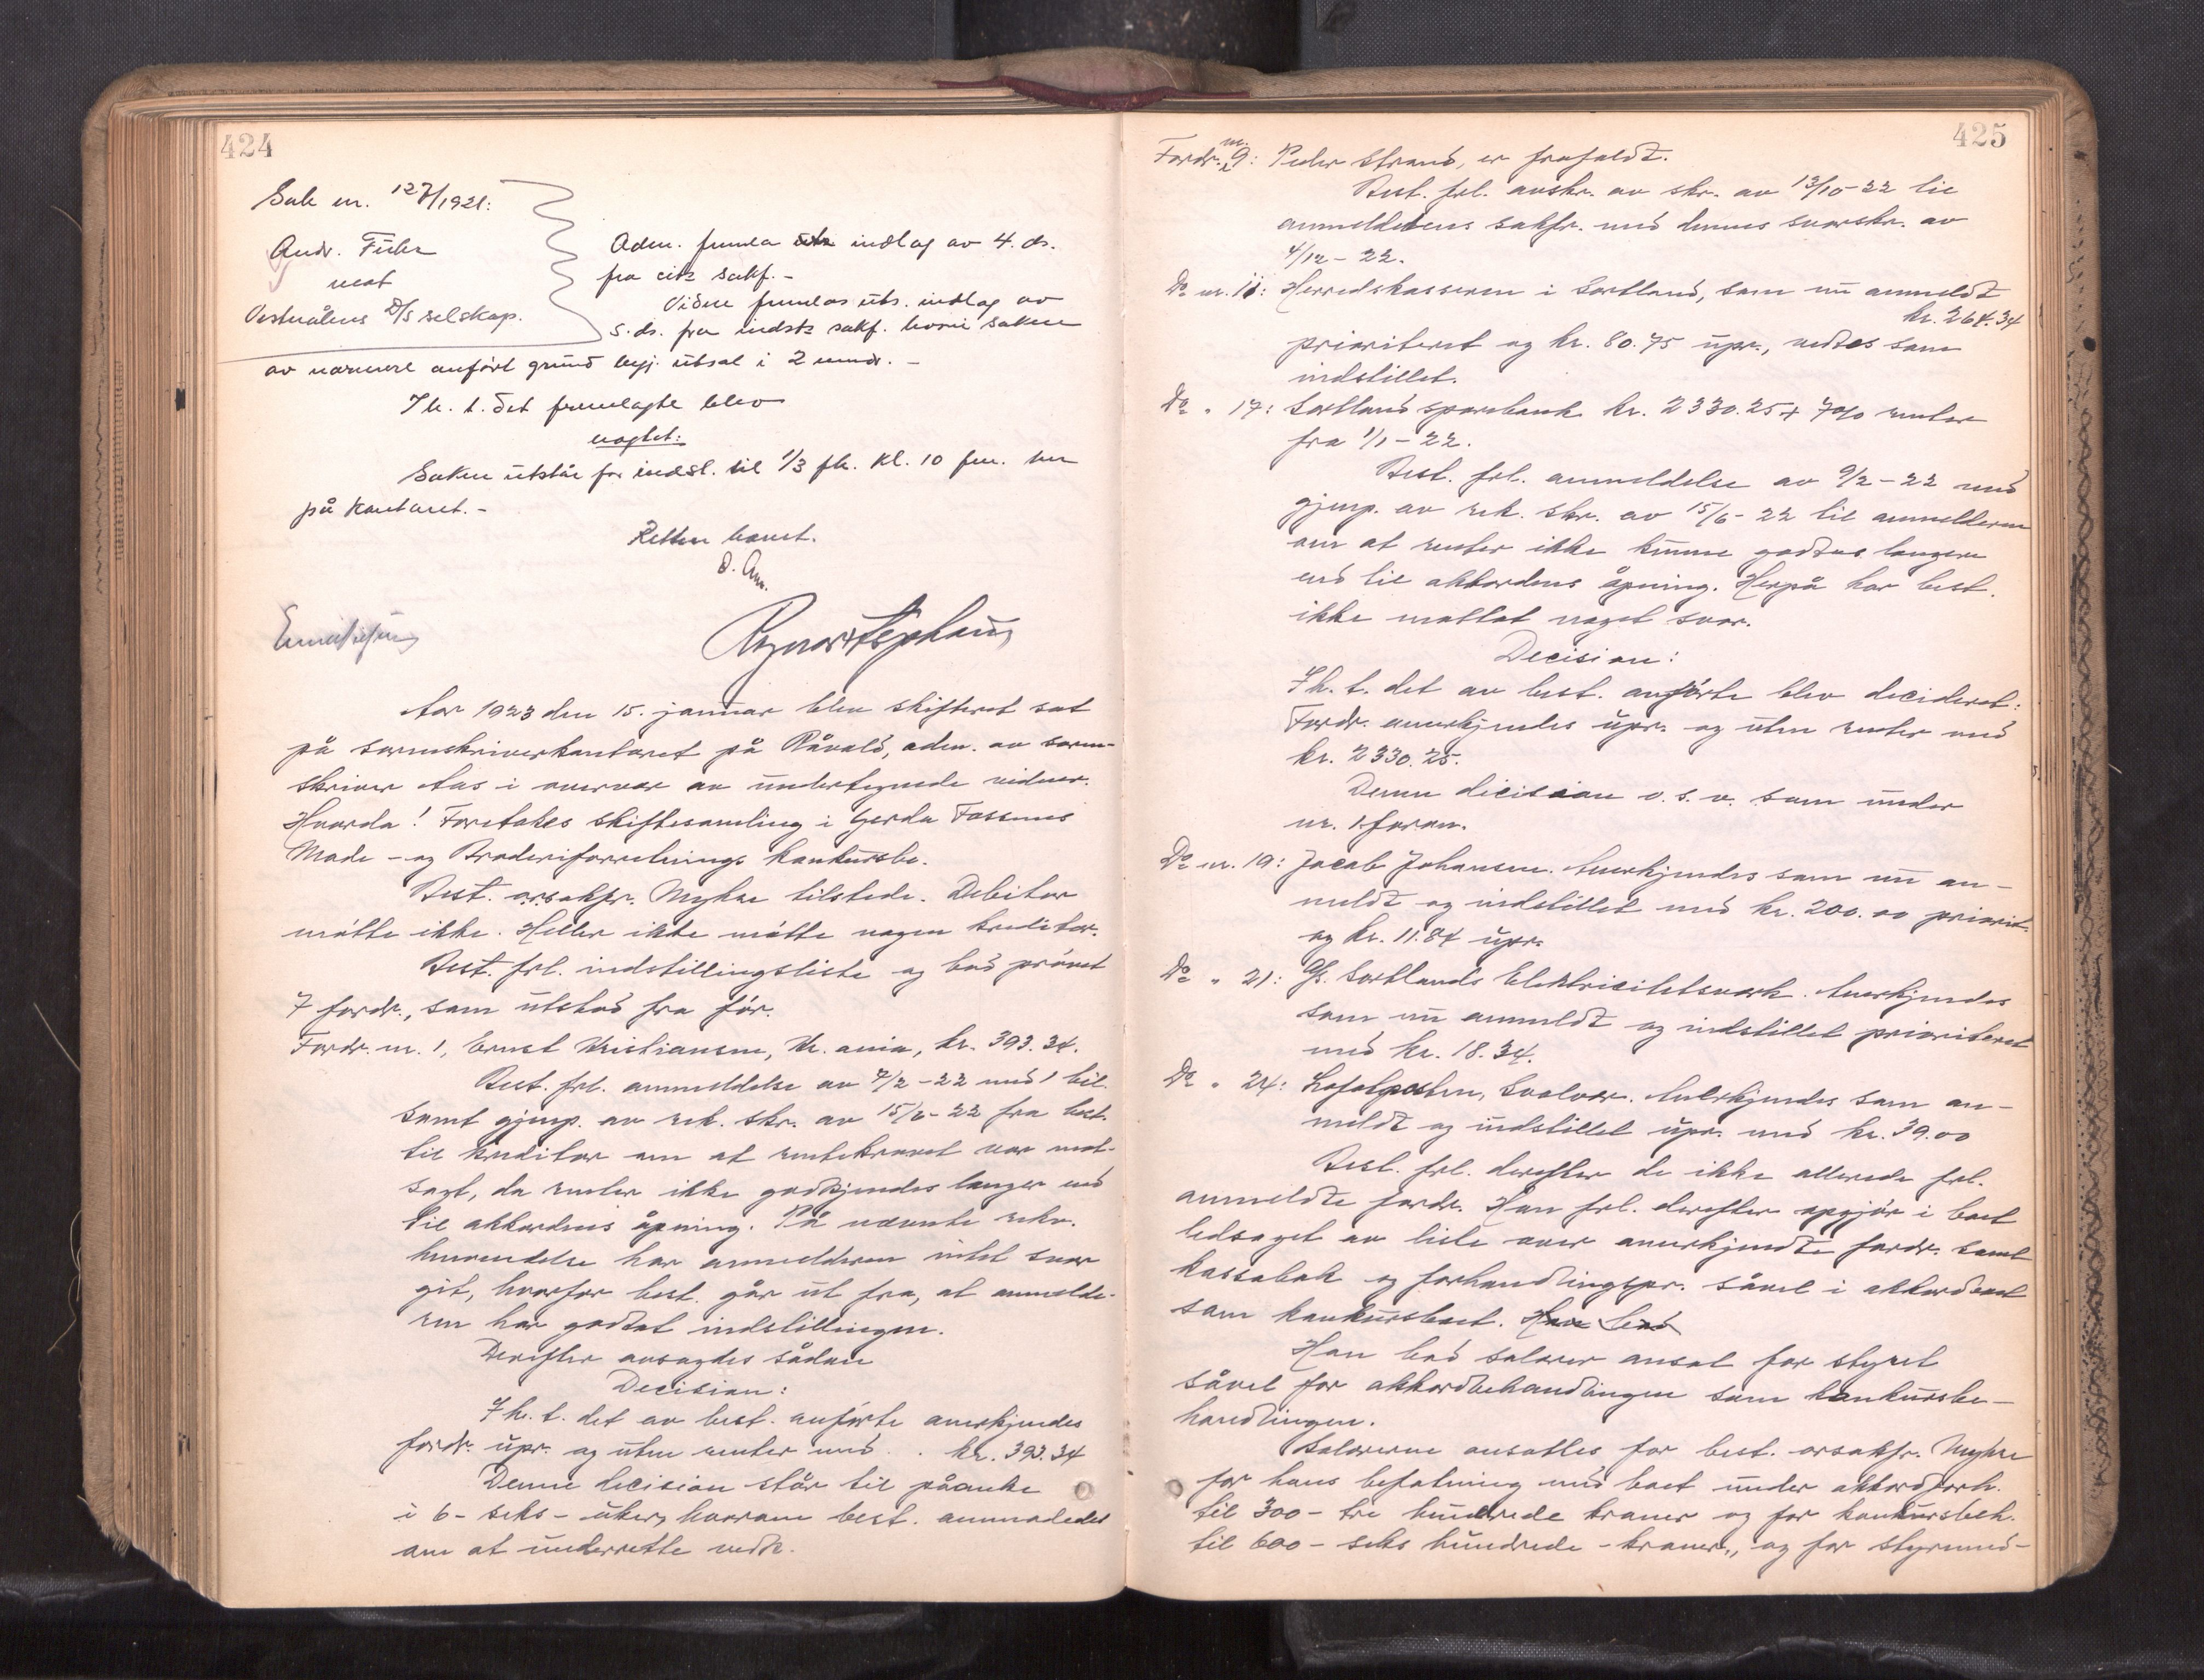 424
Sak nr. 127/1921:
Andr.
mot
Vesterålens D/s selskap.
Adm. fremla indlag av 4. ds.
fra cits sakf. -
Videre fremlas uts. indlag av
5. ds. fra indsts sakf. hvori saken
av nærmere anført grund beg. utsat i 2 mndr. -
I h. t. det fremlagte blev
vogtet:
Saken utstår for indst. til 1/3 fk. kl. 10 fm. her
på kontoret. -
Retten hævet.
Aar 1923 den 15. januar blev skifteret sat
på sorenskriverkontoret på Råvald, adm. av soren-
skriver Aas i overvær av undertegnede vidner.
Hvorda! Foretokes skiftesamling i Gerda Fossums
Mode- og Broderiforretnings konkursbo.
Best. o.r.sakfr. Myhre tilstede. Debitor
møtte ikke. Heller ikke møtte nogen kreditor.
Best. frl. indstillingsliste og bad prøvet
7 fordr., som utstod fra før.
Fordr. nr. 1, Ernst Kristiansen, Kr.ania, kr. 393.34.
Best. frl. anmeldelse av 7/2-22 med 1 bil.
samt gjenp. av rek. skr. av 15/6-22 fra best.
til kreditor om at rentekravet var mot-
sagt, da renter ikke godkjendes længer end
til akkordens åpning. På nævnte rekv.
henvendelse har anmelderen intet svar
git, hvorfor best. går ut fra, at anmelde-
ren har godtat indstillingen.
Derefter avsagdes sådan
Decision:
I h. t. det av best. anførte anerkjendes
fordr. upr. og uten renter med . . kr. 393.34
Denne decision står til påanke
i 6 - seks - uker, hvorom best. anmodedes
om at underrette vedk.
425
Fordr. nr. 9: Peder Strand, er frafaldt.
Best. frl. avskr. av skr. av 13/10-22 til
anmelderens sakfr. med dennes svarskr. av
4/12-22.
Do nr. 11: Herredskassereren i Sortland, som nu anmeldt
kr. 264.34
prioriteret og kr. 80.75 upr., vedtas som
indstillet.
Do " 17: Sortland sparebank kr. 2330.25 + 7% renter
fra 1/1-22.
Best. frl. anmeldelse av 9/2-22 med
gjenp. av rek. skr. av 15/6-22 til anmelderen
om at renter ikke kunne godtas længere
end til akkordens åpning. Herpå har best.
ikke mottat noget svar.
Decision:
I h. t. det av best. anførte blev decideret:
Fordr. anerkjendes upr. og uten renter med
kr. 2330.25.
Denne decision o. s. v. som under
nr. 1 foran.
Do nr. 19: Jacob Johansen. Anerkjendes som nu an-
meldt og indstillet med kr. 200.00 priorit.
og kr. 11.84 upr.
Do " 21: A/s. Sortlands Elektricitetsverk. Anerkjendes
som nu anmeldt og indstillet prioriteret
med kr. 18.34.
Do " 24: Lofotposten, Svolvær. Anerkjendes som an-
meldt og indstillet upr. med kr. 39.00
Best. frl. derefter de ikke allerede frl.
anmeldte fordr. Han frl. derefter opgjør i boet
ledsaget av liste over anerkjendte fordr. samt
kassabok og forhandlingspr. såvel i akkordboet
som konkursboet. Han bad
Han bad salærer ansat for styret
såvel for akkordbehandlingen som konkursbe-
handlingen.
Salærerne ansattes for best. orsakfr. Myhre
for hans befatning med boet under akkordforh.
til 300 - tre hundrede kroner og for konkursbeh.
til 600 - seks hundrede - kroner, og for styremed-